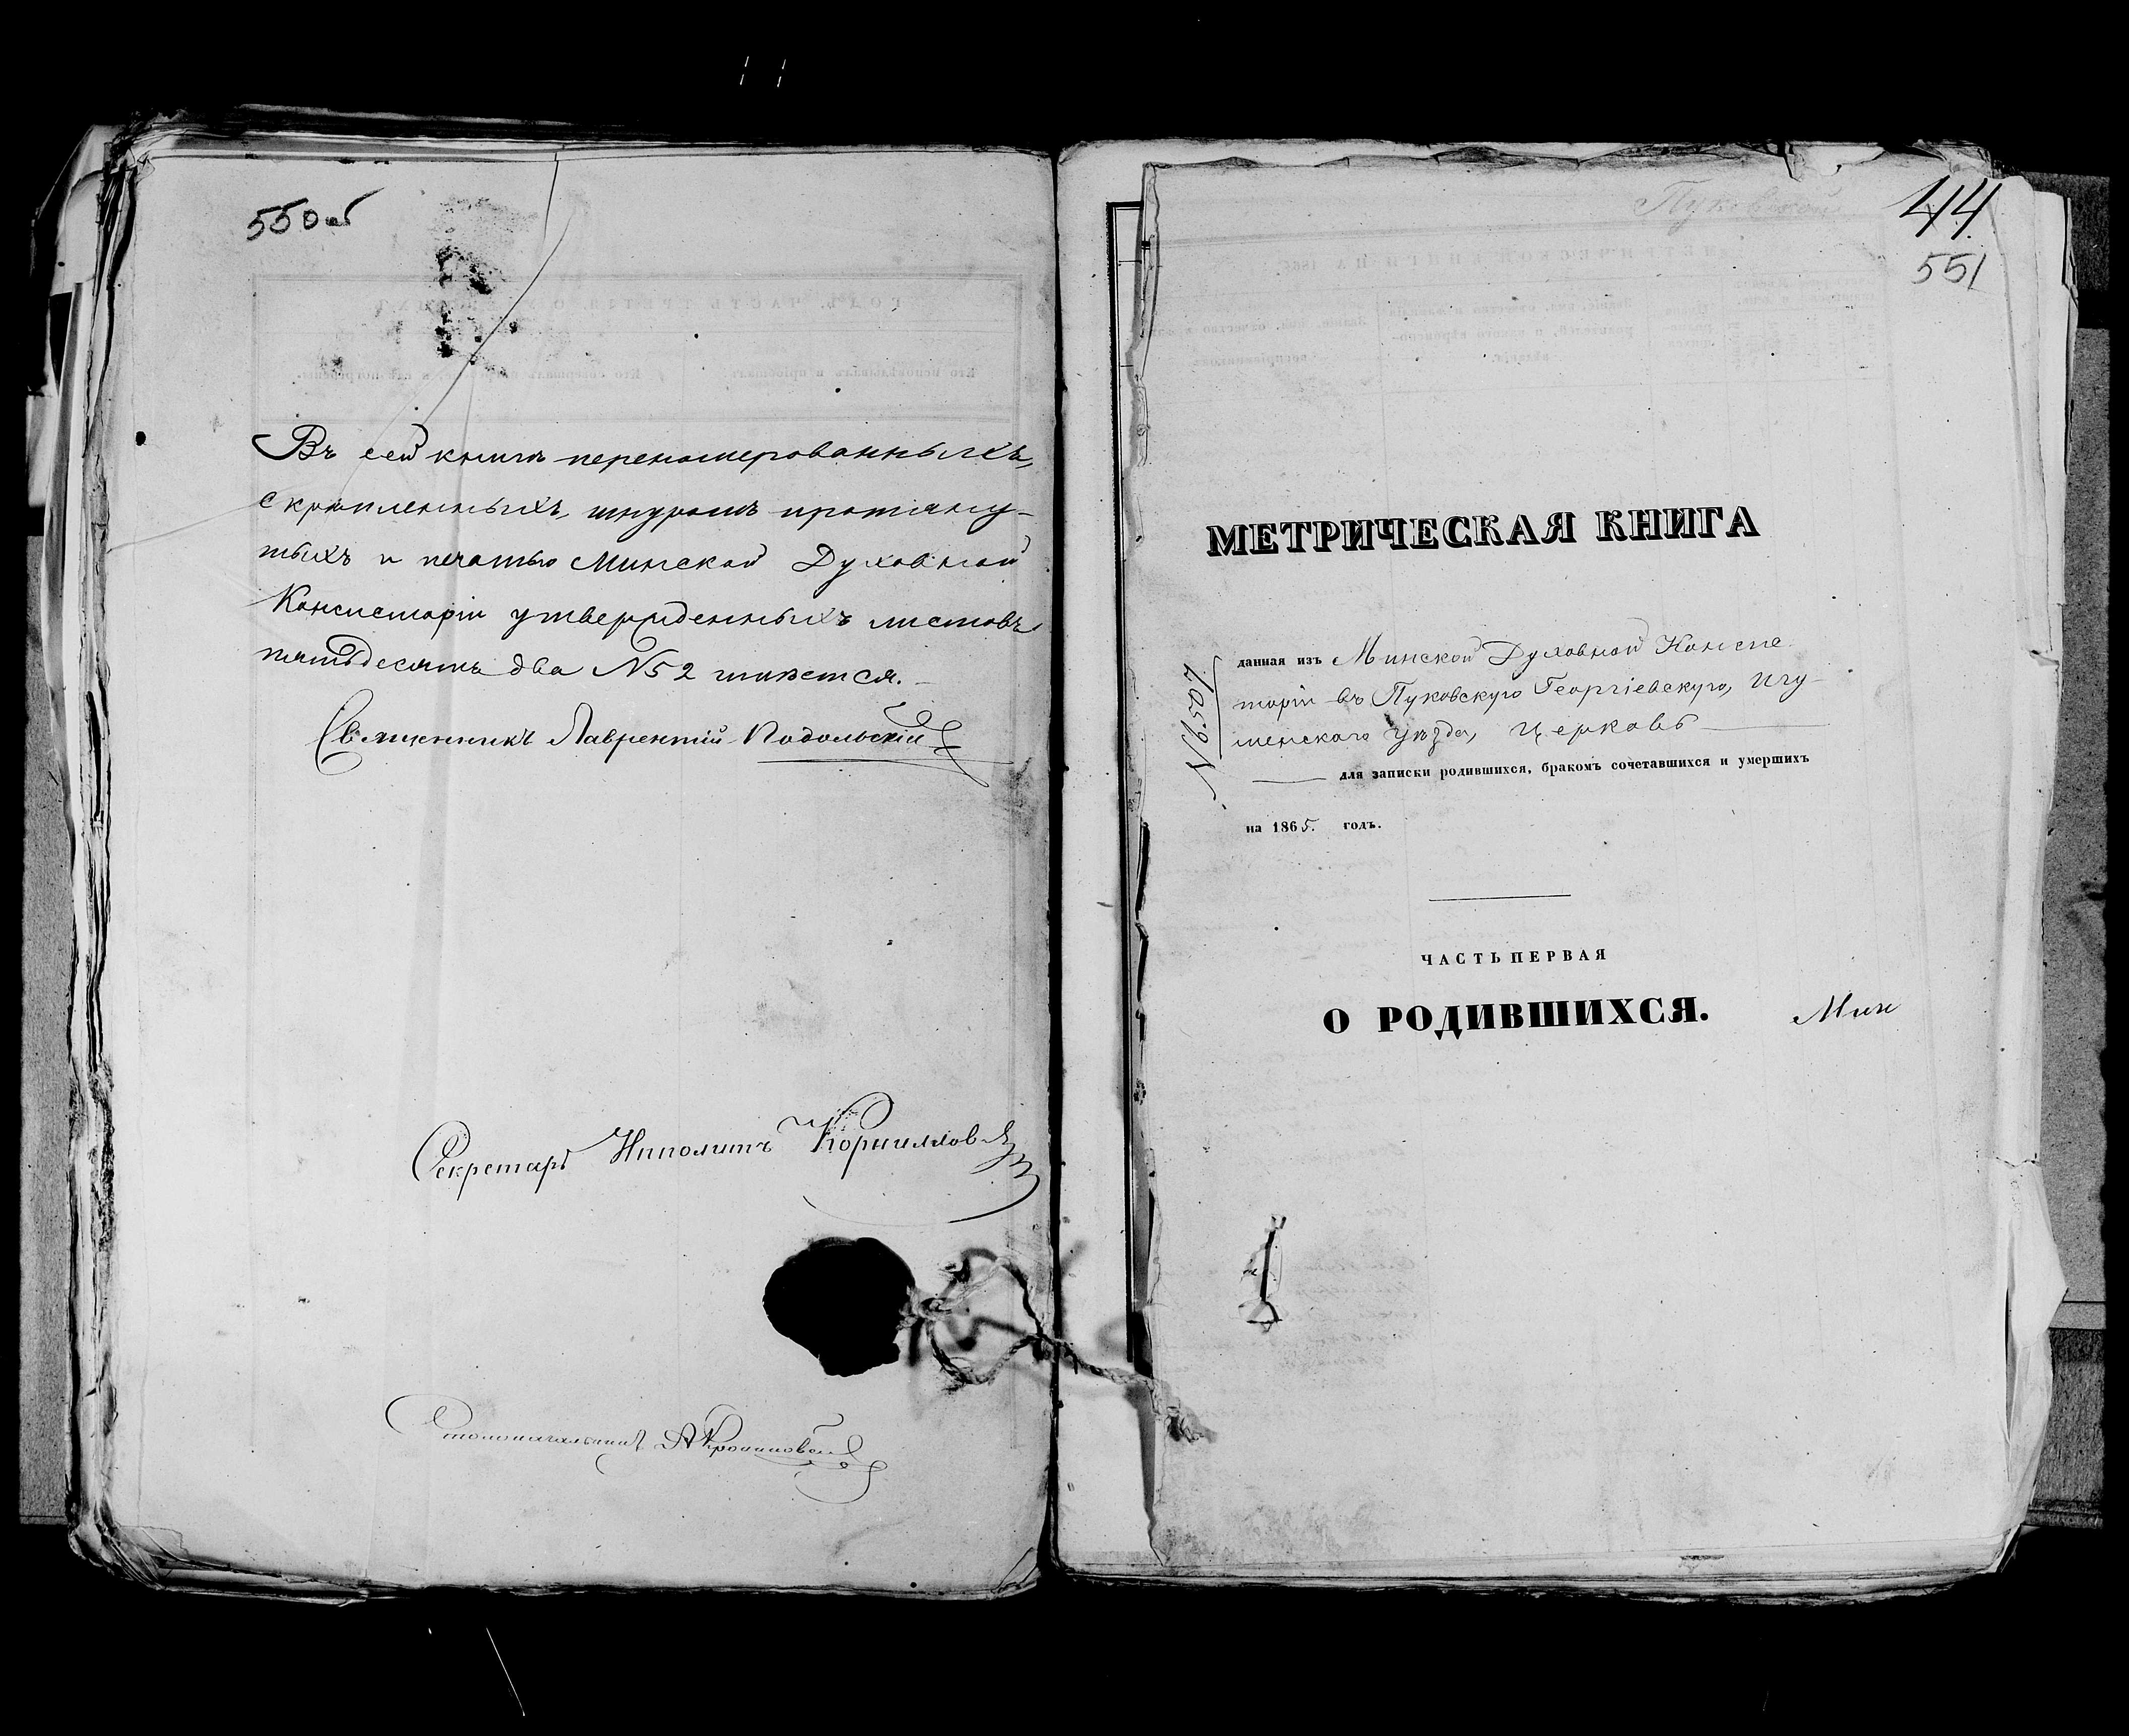 550об
Въ сей книгѣ перенумерованныхъ,
скрѣпленныхъ, шнуромъ протяну-
тыхъ и печатью Минской Духовной
Консисторіи утвержденныхъ листовъ
пятьдесятъ два №52 имѣется.
Священникъ Лаврентій Подольскій
Секретарь Ипполитъ Корнилов
Столоначальникъ
Пуковской
44
551
МЕТРИЧЕСКАЯ КНИГА
№6507
данная изъ Минской Духовной Консис
торіи въ Пуковскую Георгіевскую, Игу-
менскаго Уѣзда, Церковь
для записки родившихся, бракомъ сочетавшихся и умершихъ
на 1865. годъ.
ЧАСТЬ ПЕРВАЯ
О РОДИВШИХСЯ.
Мин